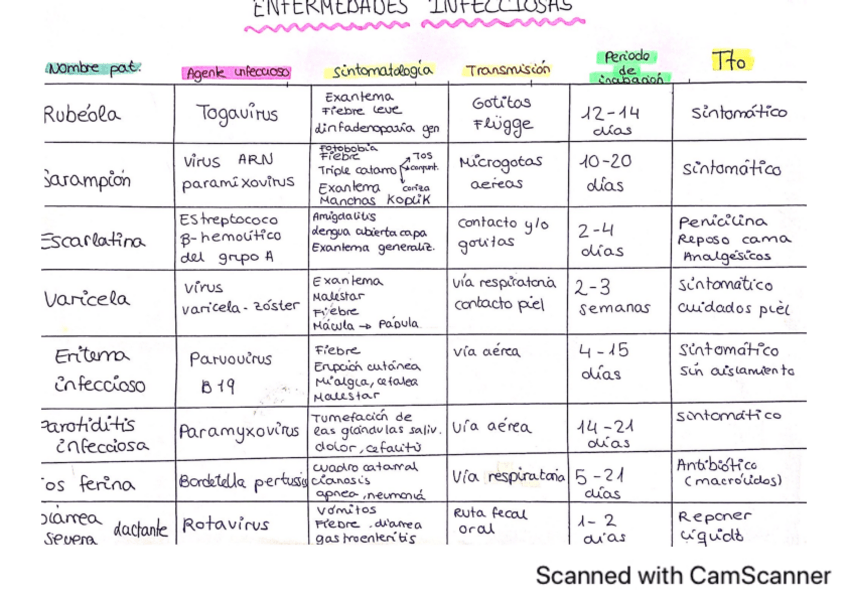 ENFERMEDADES INFECCIOSAS
Nombre pat.
Agente infeccioso
Sintomatología
Transmisión
Periodo
de
incubación
Tto
Rubéola
Togavirus
Exantema
Fiebre leve
linfadenopatía gen
Gotitas
Flügge
12-14
días
sintomático
Sarampión
virus ARN
paramixovirus
Fotobobia
Fiebre
Triple catarro
Tos
conjunt.
coriza
Exantema
Manchas Koplik
Microgotas
aereas
10-20
días
sintomático
Escarlatina
Estreptococo
β-hemolítico
del grupo A
Amigdalitis
Lengua abierta capa
Exantema generaliz.
contacto y/o
gotitas
2-4
días
Penicilina
Reposo cama
Analgésicos
Varicela
virus
varicela-zóster
Exantema
Malestar
Fiebre
Mácula → Pápula
vía respiratoria
contacto piel
2-3
semanas
sintomático
cuidados piel
Eritema
infeccioso
Parvovirus
B19
Fiebre
Erupción cutánea
Mialgia, cefalea
Malestar
vía aérea
4-15
días
Sintomático
Sin aislamiento
Parotiditis
infecciosa
Paramyxovirus
Tumefación de
las glándulas saliv.
dolor, cefalitis
vía aérea
14-21
días
sintomático
os ferina
Bordetella pertusis
cuadro catarral
cianosis
apnea, neumonía
Vía respiratoria
5-21
días
Antibiótico
(macrólidos)
Diarrea
severa
Lactante
Rotavirus
Vómitos
Fiebre, diarrea
gastroenteritis
Ruta fecal
oral
1-2
días
Reponer
líquido
Scanned with CamScanner